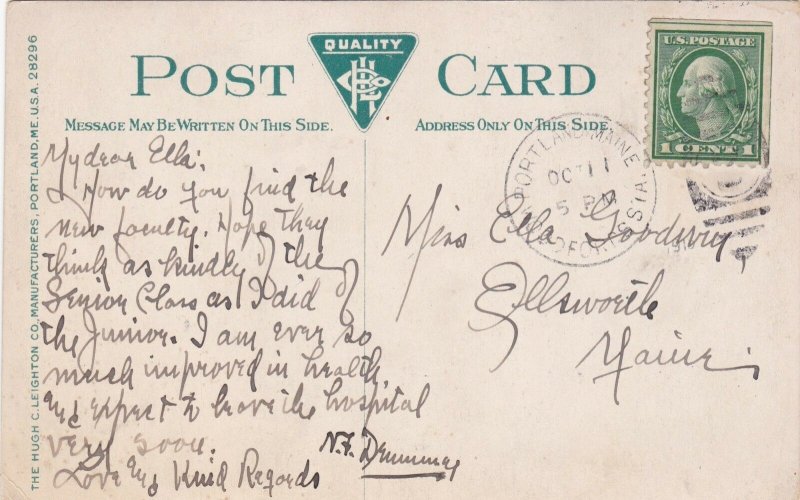 THE HUGH C. LEIGHTON CO., MANUFACTURERS, PORTLAND, ME. U.S.A. 28296
POST CARD
QUALITY
MESSAGE MAY BE WRITTEN ON THIS SIDE.
ADDRESS ONLY ON THIS SIDE
U.S. POSTAGE
1 CENT 1
PORTLAND, MAINE
OCT 11
5 PM
My dear Ella:
How do you find the
new faculty. Hope they
think as kindly of the
Senior Class as I did of
the Junior. I am ever so
much improved in health
and expect to leave the hospital
very soon.
Love and Kind Regards
N.F.
Miss Ella
Ellsworth
Maine